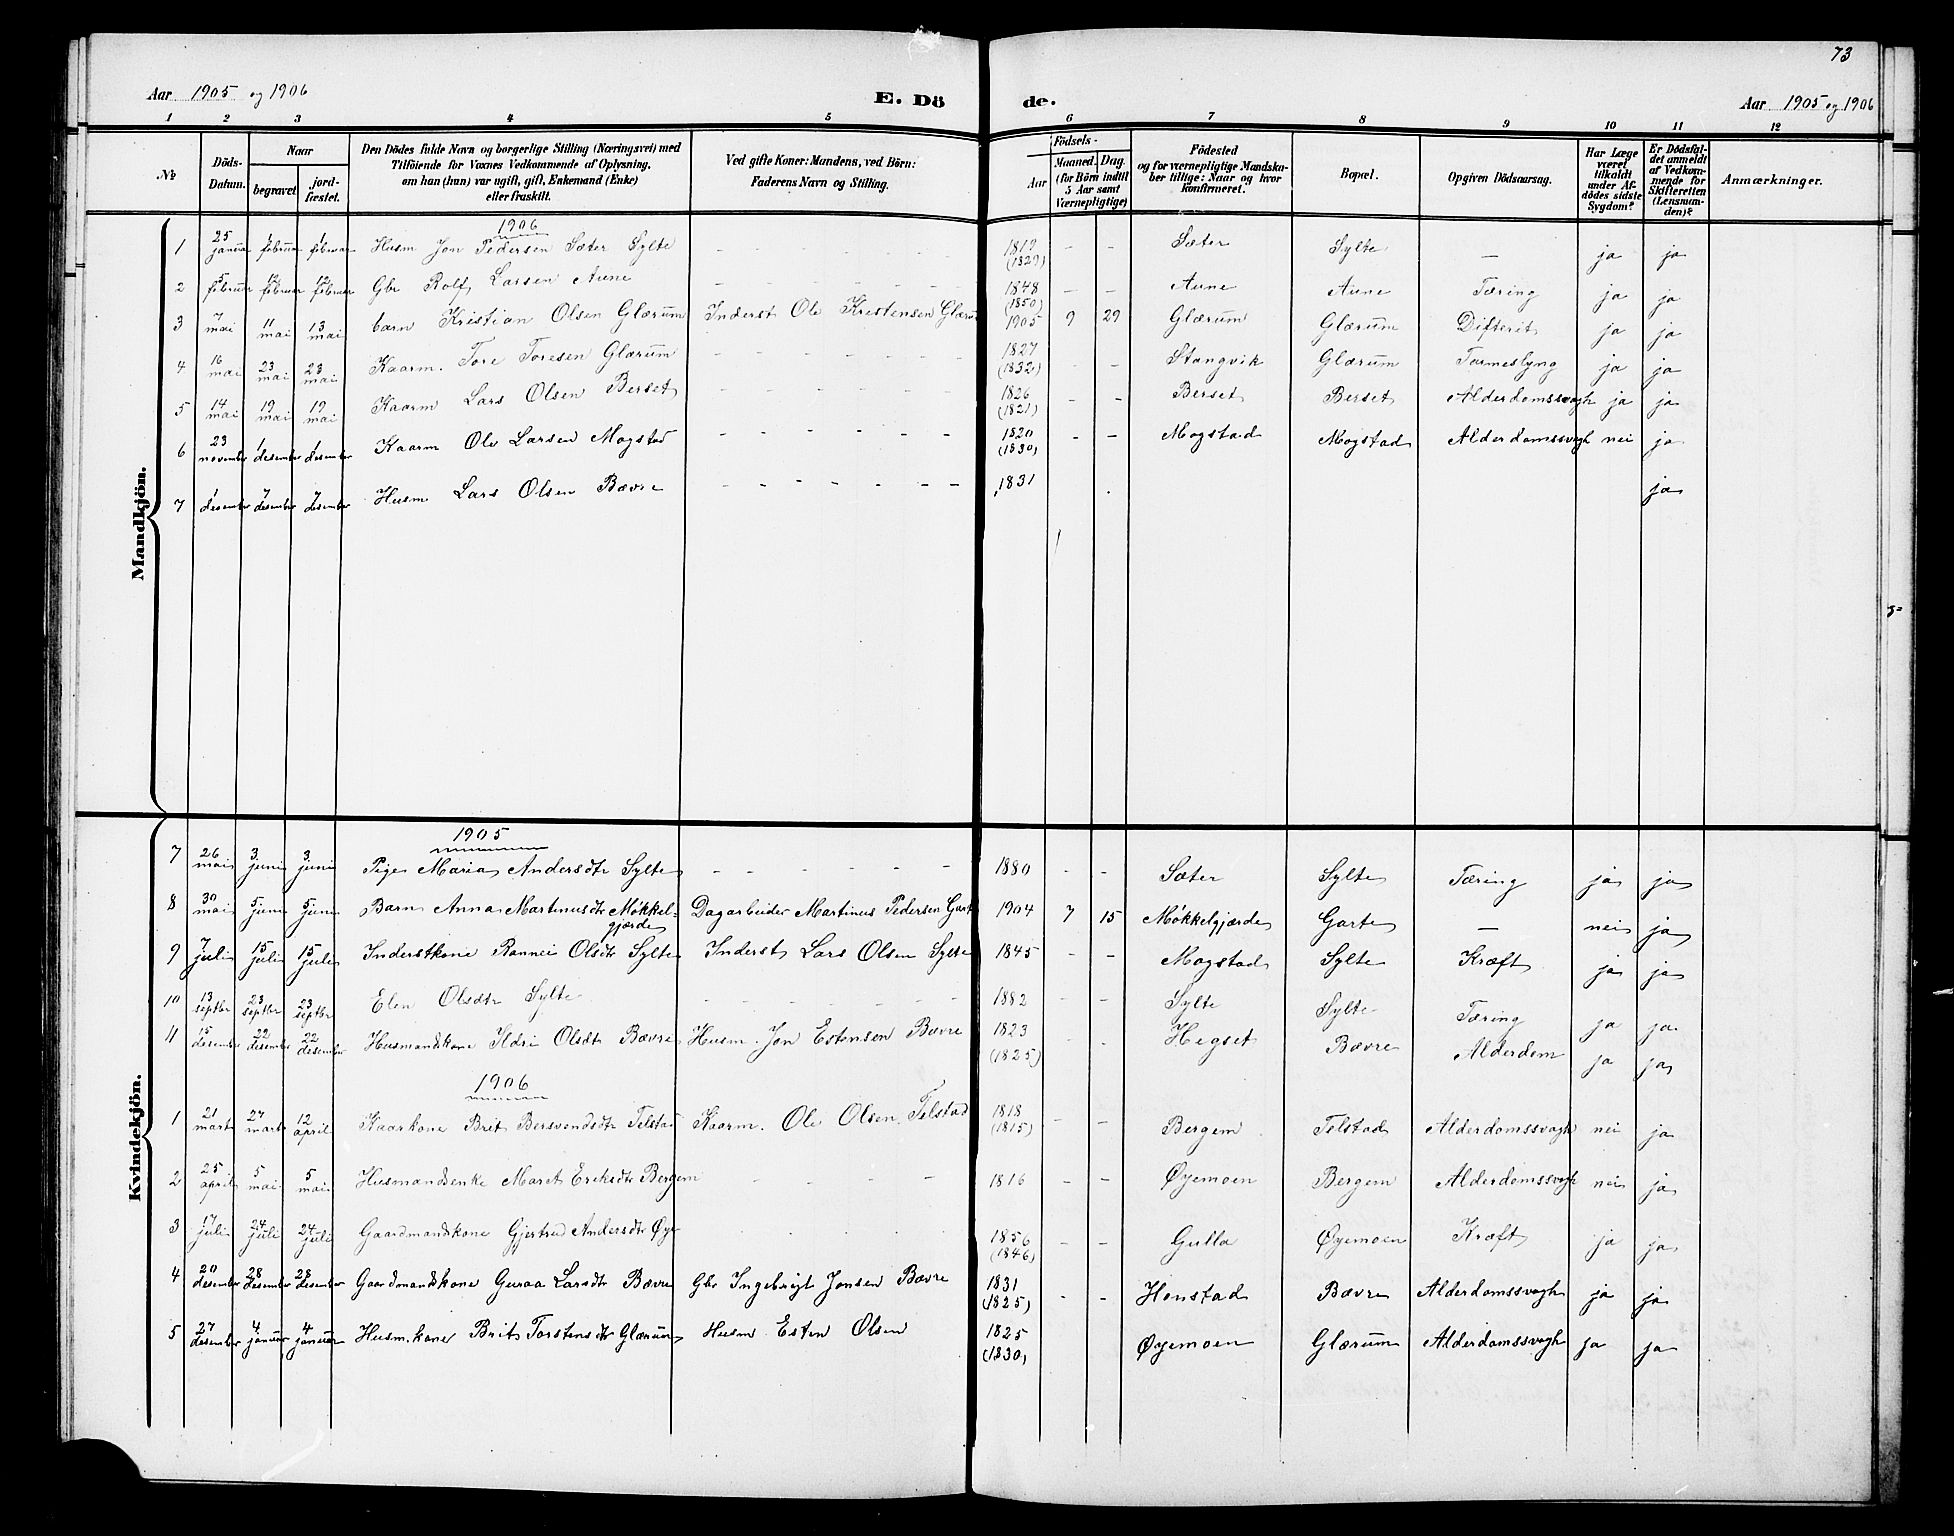 73
Aar 1905 og 1906 E. Dö de. Aar 1905 og 1906
1 2 3 4 5 6 7 8 9 10 11 12
No Döds-Datum. Naar begravet jord-fæstet. Den Dödes fulde Navn og borgerlige Stilling (Næringsvei) med Tilföiende for Voxnes Vedkommende af Oplysning, om han (hun) var ugift, gift, Enkemand (Enke) eller fraskilt. Ved gifte Koner: Mandens, ved Börn: Faderens Navn og Stilling. Födsels- Aar Maaned. Dag. (for Börn indtil 5 Aar samt Værnepligtige) Födested og for værnepligtige Mandskaber tillige: Naar og hvor Konfirmeret. Bopæl. Opgiven Dödsaarsag. Har Læge været tilkaldt under Afdödes sidste Sygdom? Er Dödsfaldet anmeldt af Vedkommende for Skifteretten (Lensmanden)? Anmærkninger.
Mandkjön.
1906
1 25 januar 1 februar 1 februar Husm Jon Pedersen Sæter Sylte - - - - - - 1819 (1829) - - Sæter Sylte — ja ja
2 5 februar 12 februar 12 februar Gbr Rolf Larsen Aune - - - - - - 1848 (1850) - - Aune Aune Tæring ja ja
3 7 mai 11 mai 13 mai barn Kristian Olsen Glærum Inderst Ole Kristensen Glærum 1905 9 29 Glærum Glærum Difterit ja ja
4 16 mai 23 mai 23 mai Kaarm. Tore Toresen Glærum - - - - - - 1827 (1832) - - Stangvik Glærum Tarmeslyng ja ja
5 14 mai 19 mai 19 mai Kaarm Lars Olsen Berset - - - - - - 1826 (1821) - - Berset Berset Alderdomssvagh ja ja
6 23 november 1 desember 1 desember Kaarm Ole Larsen Mogstad - - - - - - 1820 (1830) - - Mogstad Mogstad Alderdomssvagh nei ja
7 1 desember 7 desember 7 desember Husm Lars Olsen Bævre - - - - - - - 1831 ja
Kvindekjön.
1905
7 26 mai 3 juni 3 juni Pige Maria Andersdtr Sylte - - - - - - 1880 - - Sæter Sylte Tæring ja ja
8 30 mai 5 juni 5 juni Barn Anna Martinusdtr Møkkel- Dagarbeider Martinus Pedersen Garte 1904 7 15 Møkkelgjærde Garte — nei ja
gjærde
9 7 juli 15 juli 15 juli Inderstkone Rannei Olsdtr Sylte Inderst Lars Olsen Sylte 1845 - - Mogstad Sylte Kræft ja ja
10 13 septbr 23 septbr 23 septbr Elen Olsdtr Sylte - - - - - - - 1882 - - Sylte Sylte Tæring ja ja
11 15 desember 22 desember 22 desember Husmandskone Ildri Olsdtr Bævre Husm. Jon Estensen Bævre 1823 (1825) - - Hegset Bævre Alderdom ja ja
1906
1 21 mart 27 mart 12 april Kaarkone Brit Bersvendsdtr Telstad Kaarm. Ole Olsen Telstad 1818 (1815) - - Bergem Telstad Alderdomssvagh nei ja
2 25 april 5 mai 5 mai Husmandsenke Maret Eriksdtr Bergem - - - - 1816 - - Øyemoen Bergem Alderdomssvagh nei ja
3 17 juli 24 juli 24 juli Gaardmandskone Gjertrud Andersdtr Øye - - - - 1856 (1846) - - Gulla Øyemoen Kræft ja ja
4 20 desember 28 desember 28 desember Gaardmandskone Guraa Larsdtr Bævre Gbr Ingebrigt Jonsen Bævre 1831 (1825) - - Honstad Bævre Alderdomssvagh ja ja
5 27 desember 4 januar 4 januar Husm.kone Brit Torstensdtr Glærum Husm Esten Olsen 1825 (1830) Øyemoen Glærum Alderdomssvagh ja ja